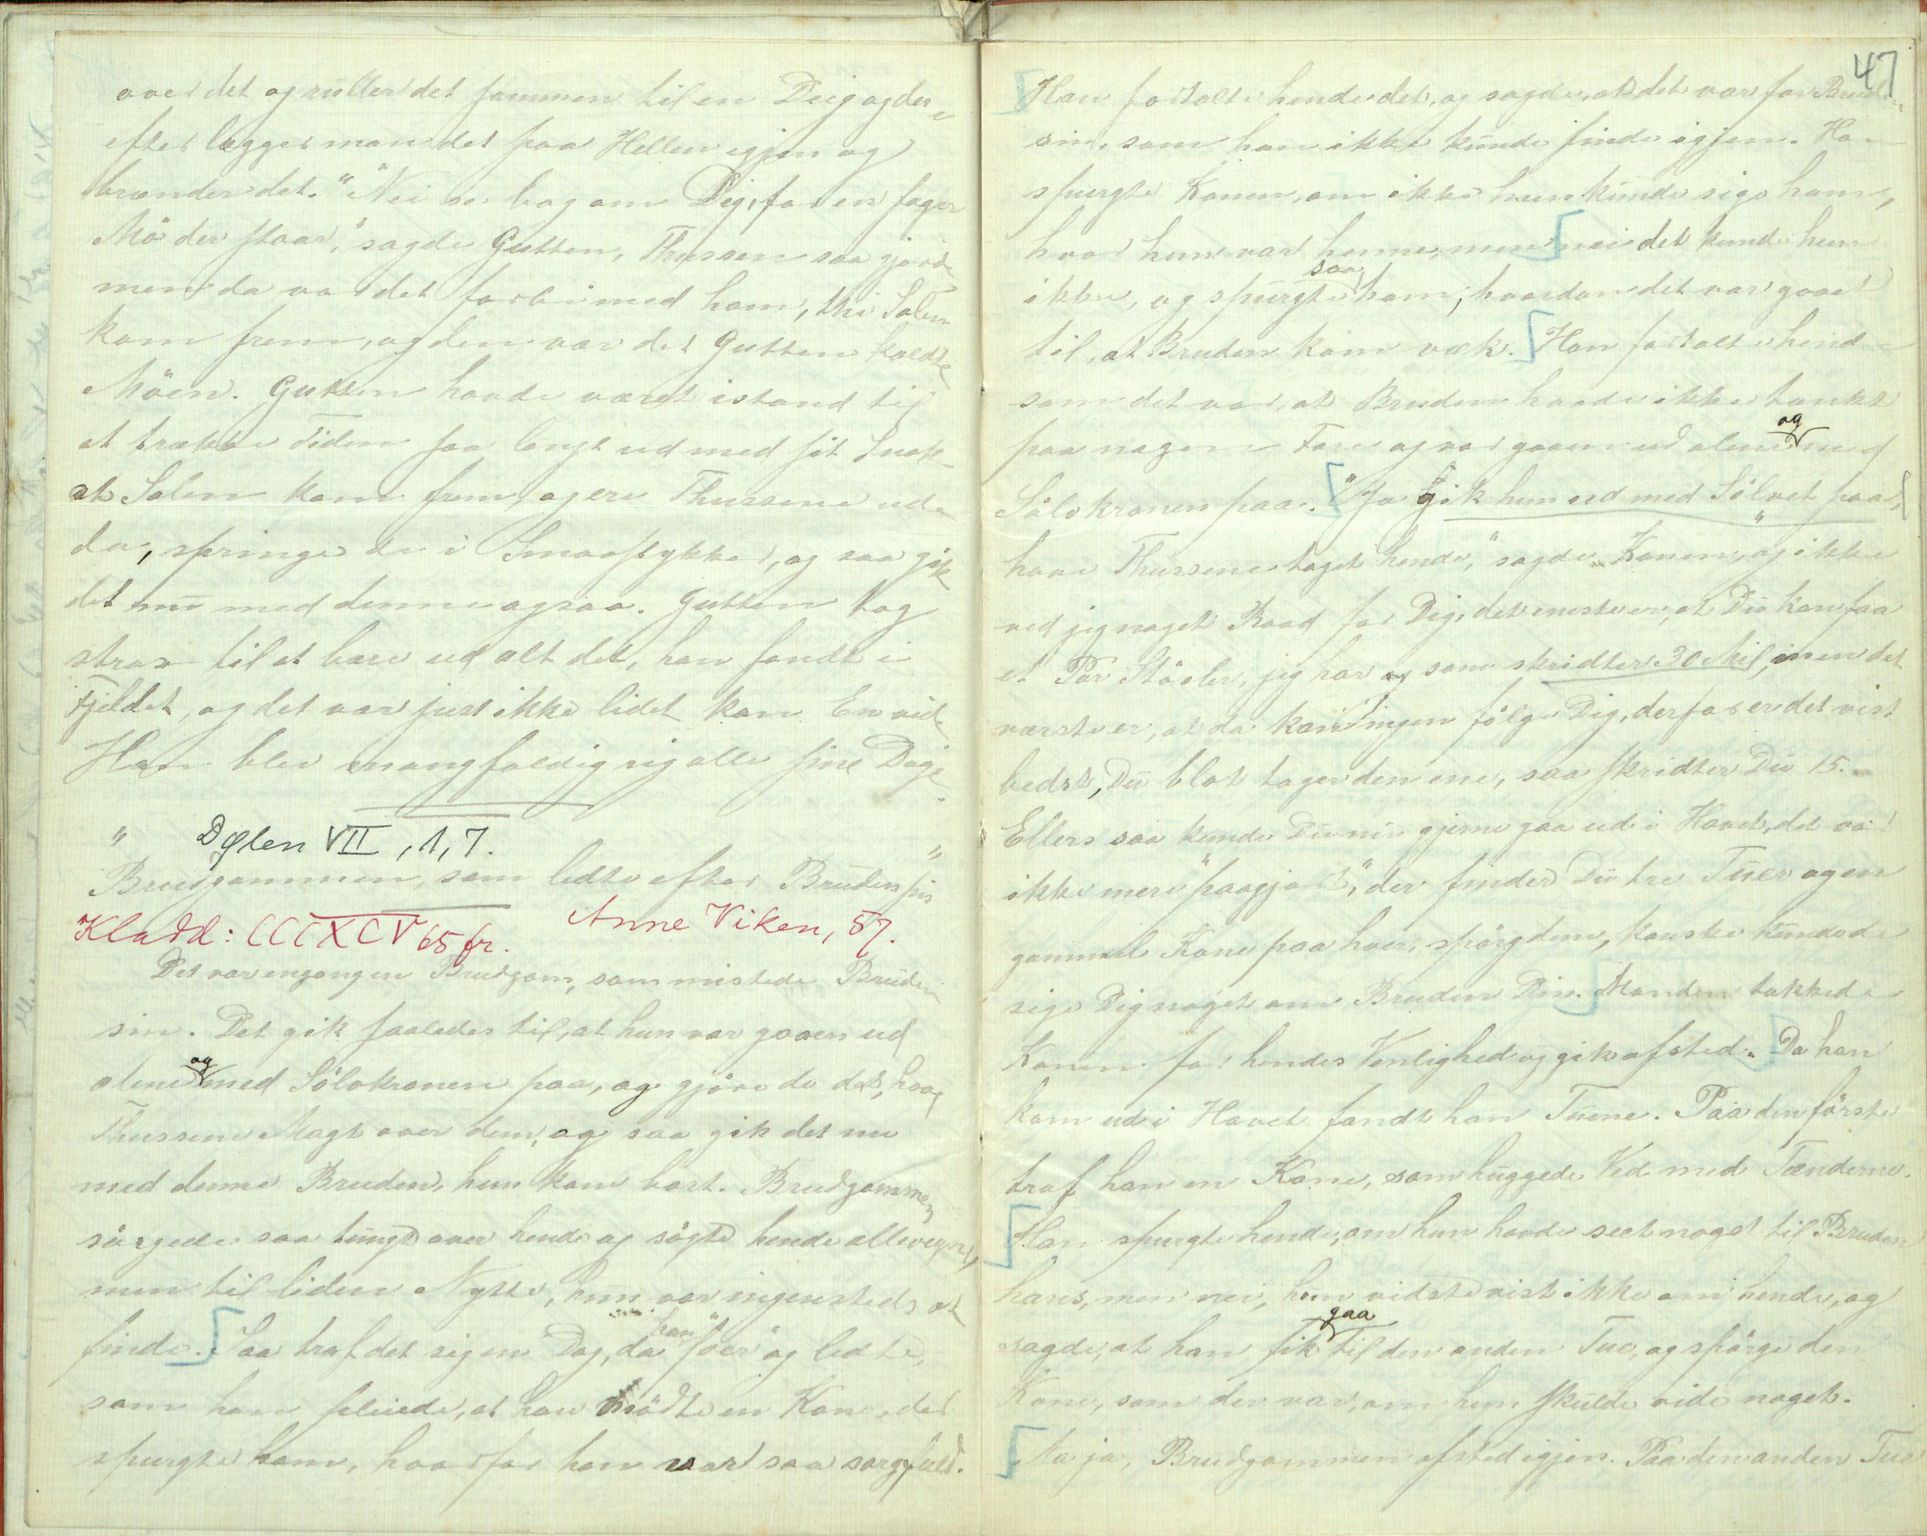 over det og ruller det sammen til en Deig og der-
efter lægger man det paa Hellen igjen og
brænder det." "Nei se bag om Dig, for en fager
Mö der staar," sagde Gutten, Thussen saa gjorde
men da var det forbi med ham, thi Solen
kom frem, og den var det Gutten kaldte
Möen. Gutten havde været istand til
at trække Tiden saa langt ud med sit Snak
at Solen kom frem, og ere Thussene ude
da, springe de i Smaastykker, og saa gik
det nu med denne ogsaa. Gutten tog
strax til at bære ud alt det, han fandt i
Fjeldet, og det var just ikke lidet kan En vide
Han blev mangfoldig rig alle sine Dage.
" Dølen VII, 1, 7.
Brudgommen, som ledte efter Bruden sin "
Kladd: CCCXCV 65 fr. Anne Viken, 57.
Det var engang en Brudgom, som mistede Bruden
sin. Det gik saaledes til, at hun var gaaen ud
alene og med Sölvkronen paa, og gjöre de det, have
Thussene Magt over dem, og saa gik det nu
med denne Bruden, hun kom bort. Brudgommen
sörgede saa tungt over hende og sögte hende allevegne,
men til liden Nytte, hun var ingensteds at
finde. Saa traf det sig en Dag, da han "för" og ledte,
som han pleiede, at han mödte en Kone, der
spurgte ham, hvorfor han var saa sorgfuld.
47
Han fortalte hende det, og sagde, at det var for Bruden
sin, som han ikke kunde finde igjen. Han
spurgte Konen, om ikke hun kunde sige ham,
hvor hun var henne, men nei det kunde hun
ikke, og spurgte saa ham, hvordan det var gaaet
til, at Bruden kom væk. Han fortalte hende
som det var, at Bruden havde ikke tænkt
paa nogen Fare og var gaaen ud alene og med
Sölvkronen paa. "Ja gik hun ud med Sölvet paa,
have Thussene taget hende," sagde Konen, "og ikke
ved jeg noget Raad for Dig, det eneste er, at Du kan faa
et Par Stövler, jeg har og som skridter 30 Mil, men det
værste er, at da kan ingen fölge Dig, derfor er det vist
bedst, Du blot tager den ene, saa skridter Du 15.
Ellers saa kunde Du nu gjerne gaa ud i Havet, det var
ikke mere "paagjort", der finder Du tre Tuer og en
gammel Kone paa hver, spörg dem, kanske kunde de
sige Dig noget om Bruden Din. Manden takkede
Konen for hendes Venlighed og gik afsted. Da han
kom ud i Havet fandt han Tuene. Paa den förste
traf han en Kone, som huggede Ved med Tænderne.
Han spurgte hende, om hun havde seet noget til Bruden
hans, men nei, hun vidste vist ikke om hende, og
sagde, at han fik gaa til den anden Tue, og spörge den
Kone, som der var, om hun skulde vide noget.
Na ja, Brudgommen afsted igjen. Paa den anden Tue